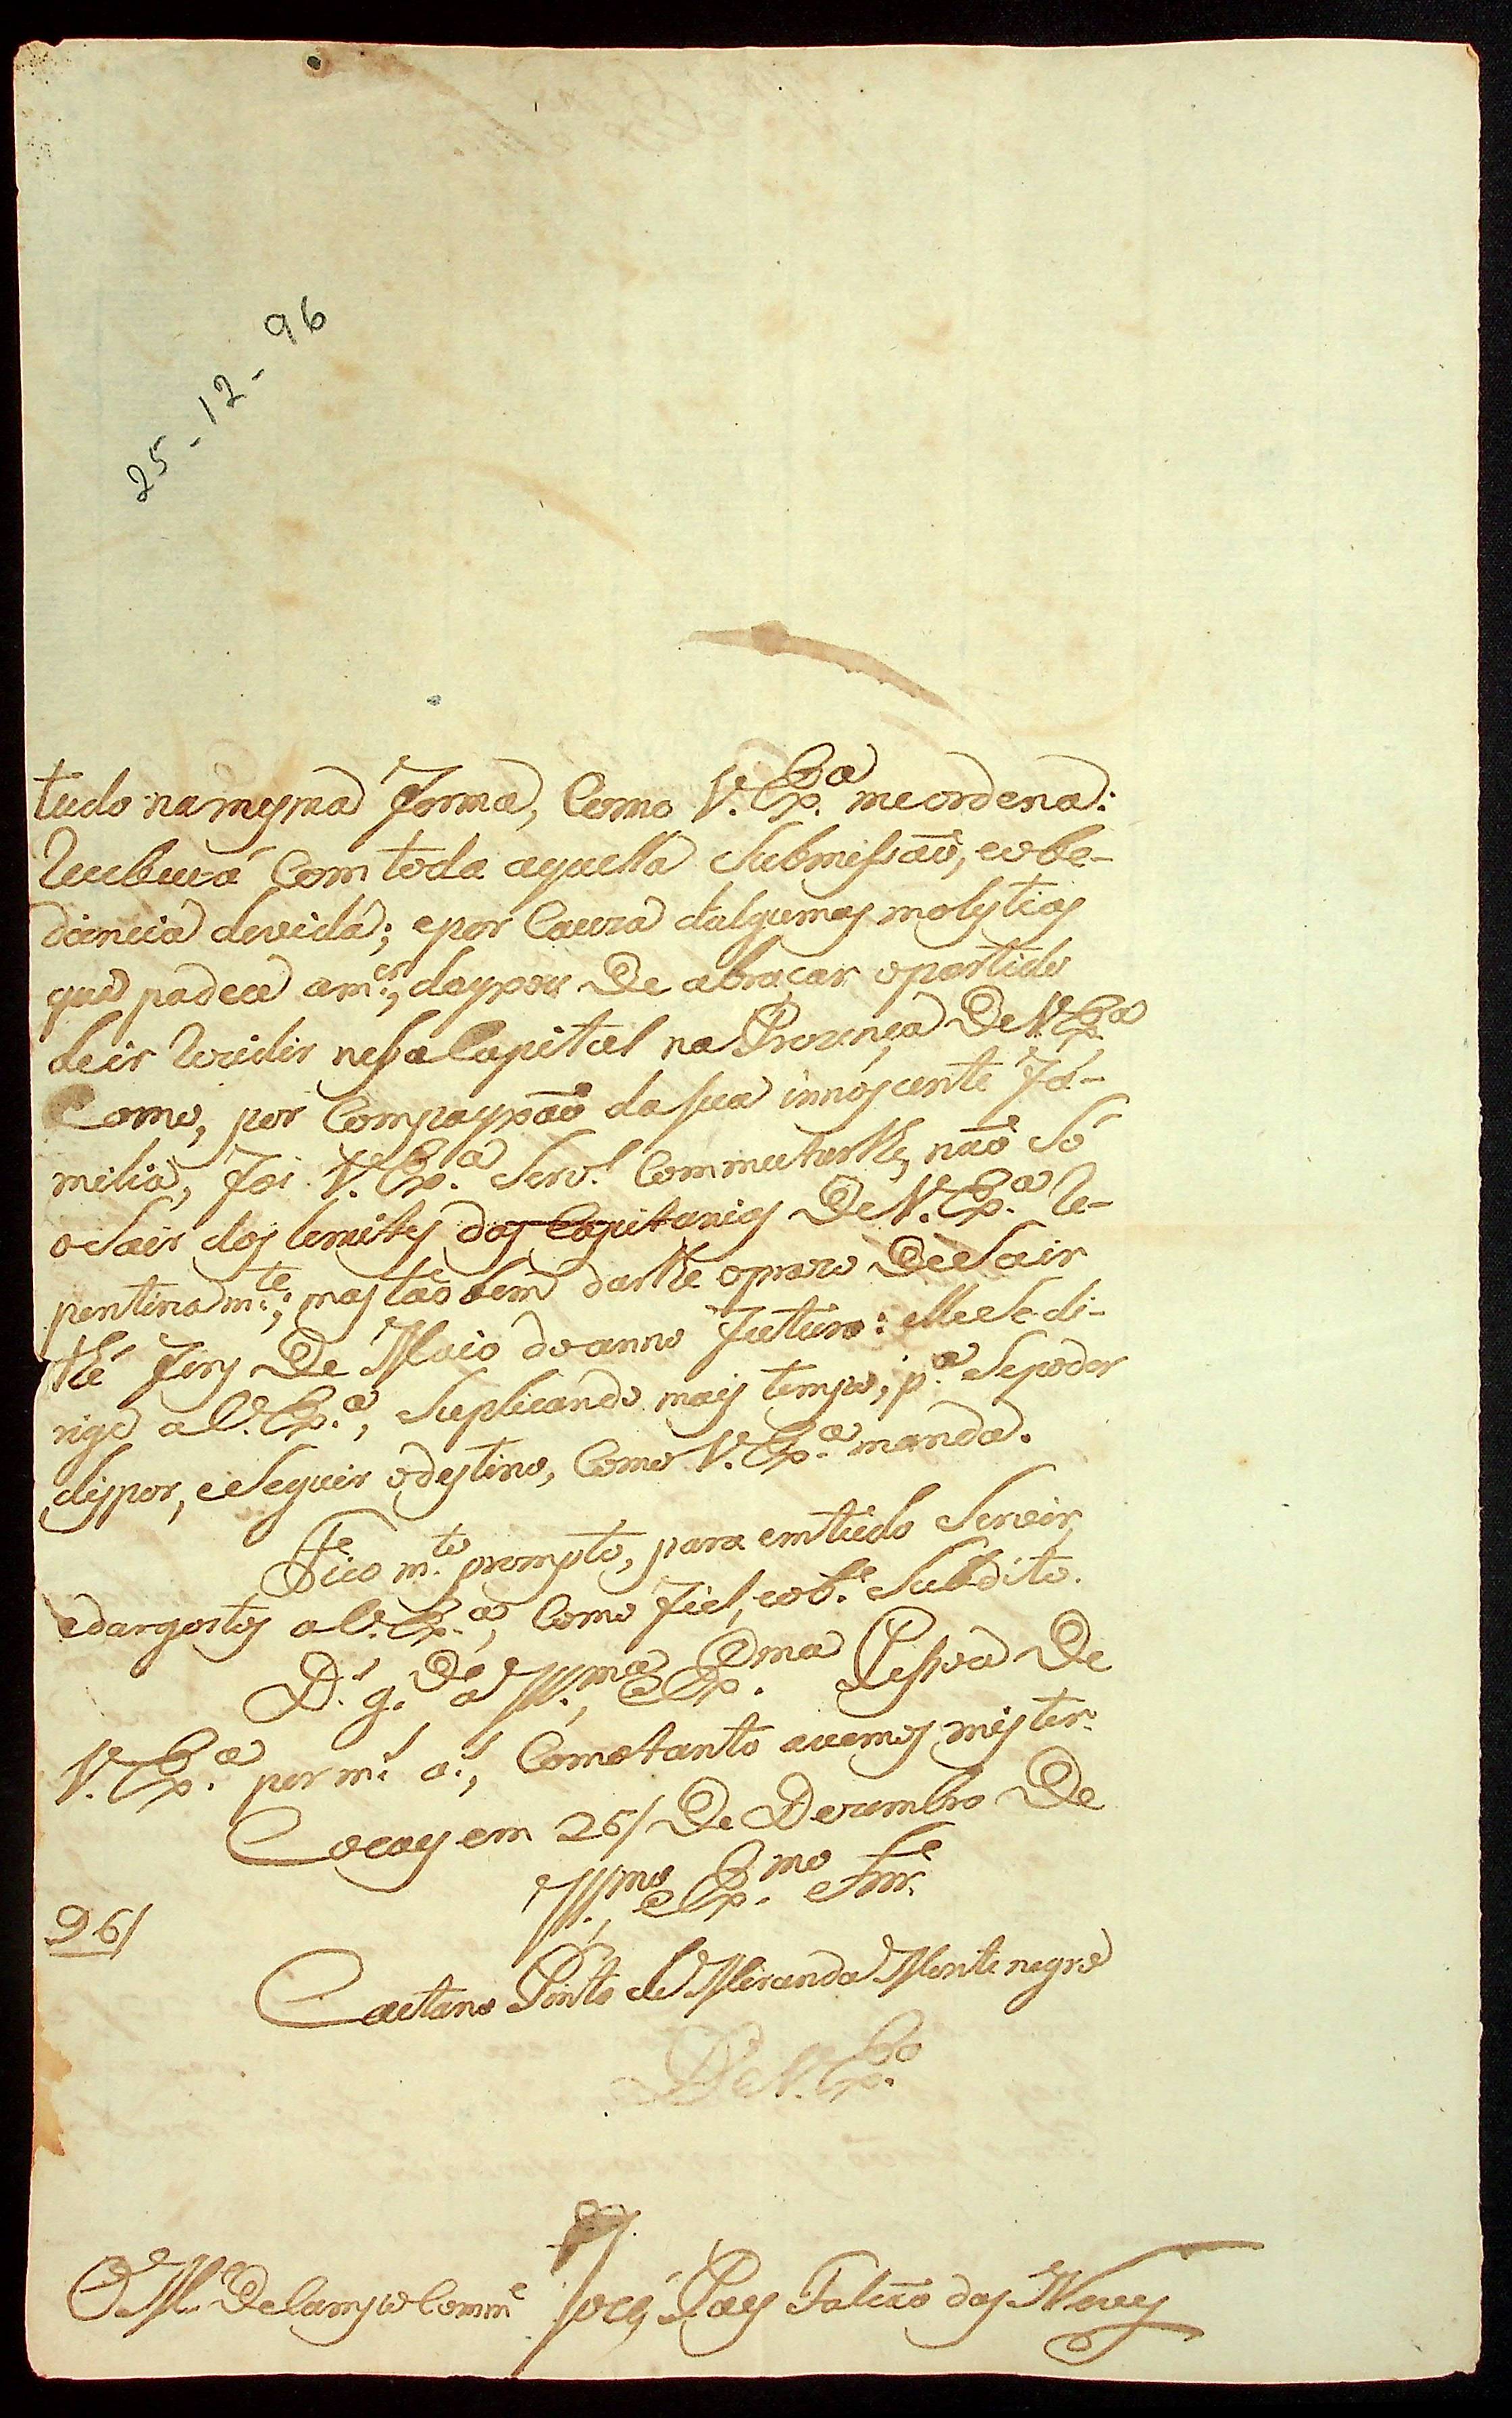 25-12-96
tudo na mesma forma, Como V. Ex.ª me ordena:
Recebeu-á Com toda aquella Submissaõ, eobe-
diencia devida; epor Cauza dalgumas molestias
que padece am.er, daypois De abraçar opartido
deir Rezidir nessa Capital na Prezença De V. Ex.ª
Como, por Compayxaõ dasua innoscente Fa-
milia, foi V. Ex.ª Serv.l Commutarlhe, naõ Só
oSair dos lemites das Capitanias De V. Ex.ª Re-
pentinam.te; mas taõ bem darlhe oprazo DeSair
thé fins De Maio doanno futuro: elleSe di-
rige a V. Ex.ª, Suplicando mais tempo, p.ª Sepoder
dispor, eSeguir odestino, Como V. Ex.ª manda.
Fico m.to prompto, para emtudo Servir,
edargostos a V. Ex.ª, Como fiel, eob.e Subdito.
D.s g.de a Ill.ma, e Ex.ma Pessoa De
V. Ex.ª por m.s a.s, Comotanto avemos mister.
Cocays em 26/ De Dezembro De
96/
Ill.mo, e Ex.mo Snr.
Caetano Pinto de Miranda Montenegro
De V. Ex.ª
O M.e DeCampo Comm.e Joze Paes Falcaõ das Neves